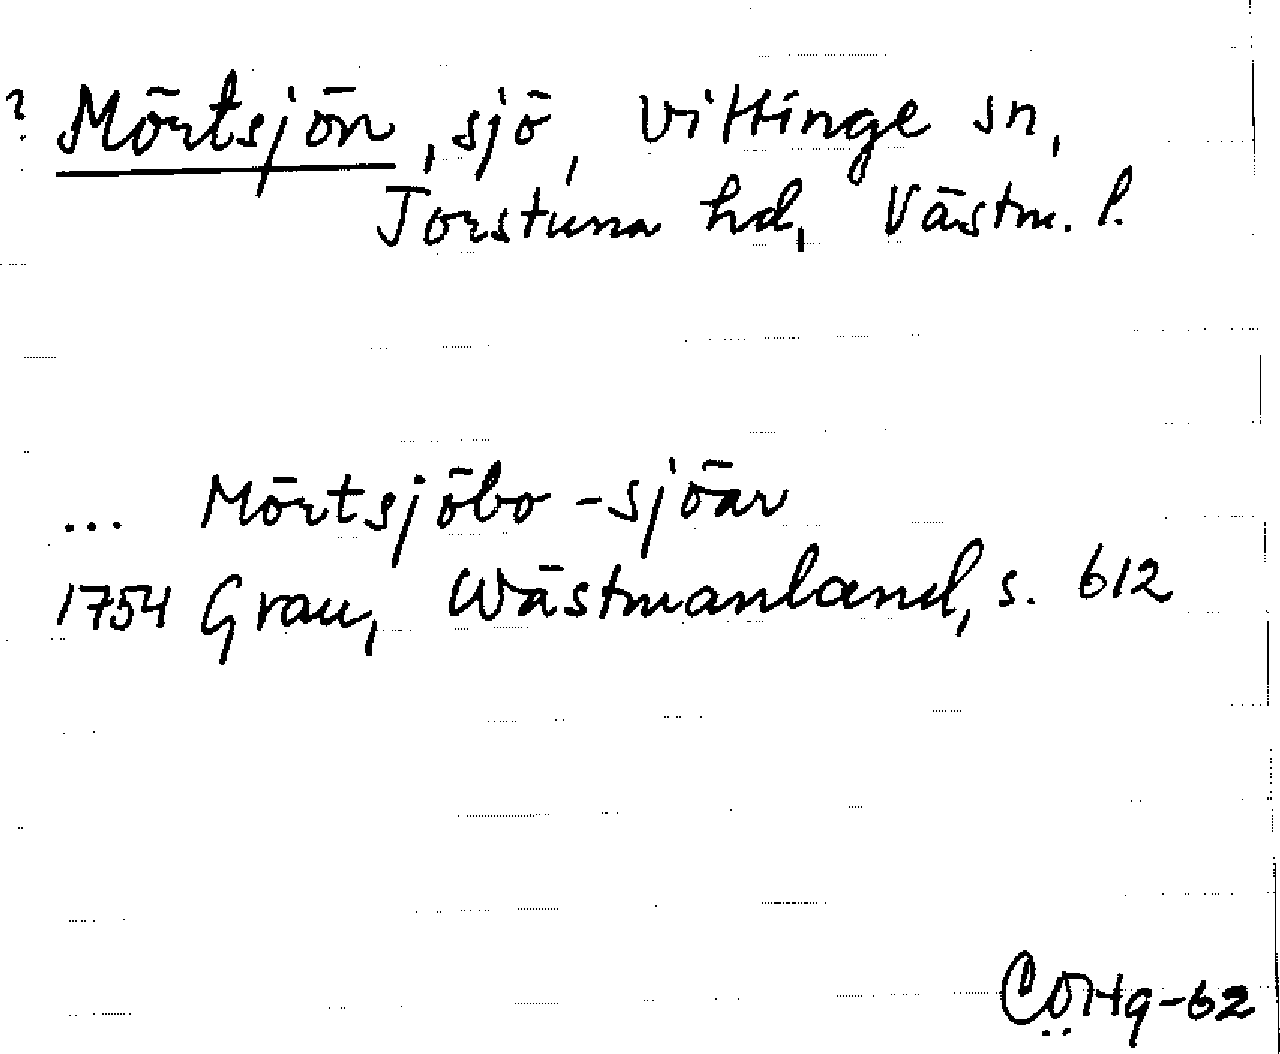 ? Mörtsjön, sjö, Vittinge sn,
Torstuna hd, Västm. l.
... Mörtsjöbo-sjöar
1754 Grau, Wästmanland, s. 612